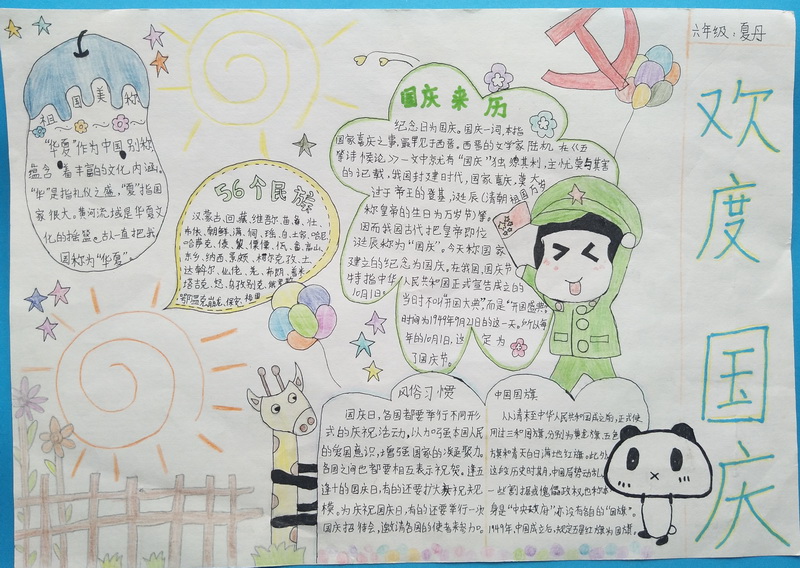 六年级：夏丹
欢度国庆
祖国美称
"华夏"作为中国别称
蕴含着丰富的文化内涵。
"华"是指礼仪之盛，"夏"指国
家很大。黄河流域是华夏文
化的摇篮。古人直把我
国称为"华夏"。
56个民族
汉、蒙古、回、藏、维吾尔、苗、彝、壮、
布依、朝鲜、满、侗、瑶、白、土家、哈尼、
哈萨克、傣、黎、傈僳、佤、畲、高山、
东乡、纳西、景颇、柯尔克孜、土、
达斡尔、仫佬、羌、布朗、
塔吉克、怒、乌孜别克、俄罗斯、
鄂温克、保安、裕固
国庆来历
纪念日为国庆。国庆一词，本指
国家喜庆之事，最早见于西晋。西晋的文学家陆机 在《五
等诸侯论》一文中就有"国庆"独飨其利，主忧莫与其害
的记载、我国封建时代、国家喜庆、莫大
过于帝王的登基、诞辰（清朝
称皇帝的生日为万岁节）等。
因而我国古代把皇帝即位、
诞辰称为"国庆"。今天称国家
建立的纪念为国庆。在我国，国庆节
特指中华人民共和国正式宣告成立的
10月1日。
当时不叫"开国大典"而是"开国盛典"。
时间为1949年9月21日的这一天。所以每
年的10月1日，这 定为
了国庆节。
祖国万岁
风俗习惯
国庆日，各国都要举行不同形
式的庆祝活动，以加强本国人民
的爱国意识，增强国家的凝聚力。
各国之间也都要相互表示祝贺。逢五
逢十的国庆日，有的还要扩大庆祝规
模。为庆祝国庆日，有的还要举行一次
国庆招待会，邀请各国的使者来参加。
中国国旗
从清末至中华人民共和国成立前，正式使
用过三和国旗，分别为黄龙旗、五色
旗和青天白日满地红旗，此外
这段历史时期，中国局势动乱
一些割据或傀儡政权也
身是"中央政府"亦设有各自的"国旗"。
1949年，中国成立后，规定五星红旗为国旗。